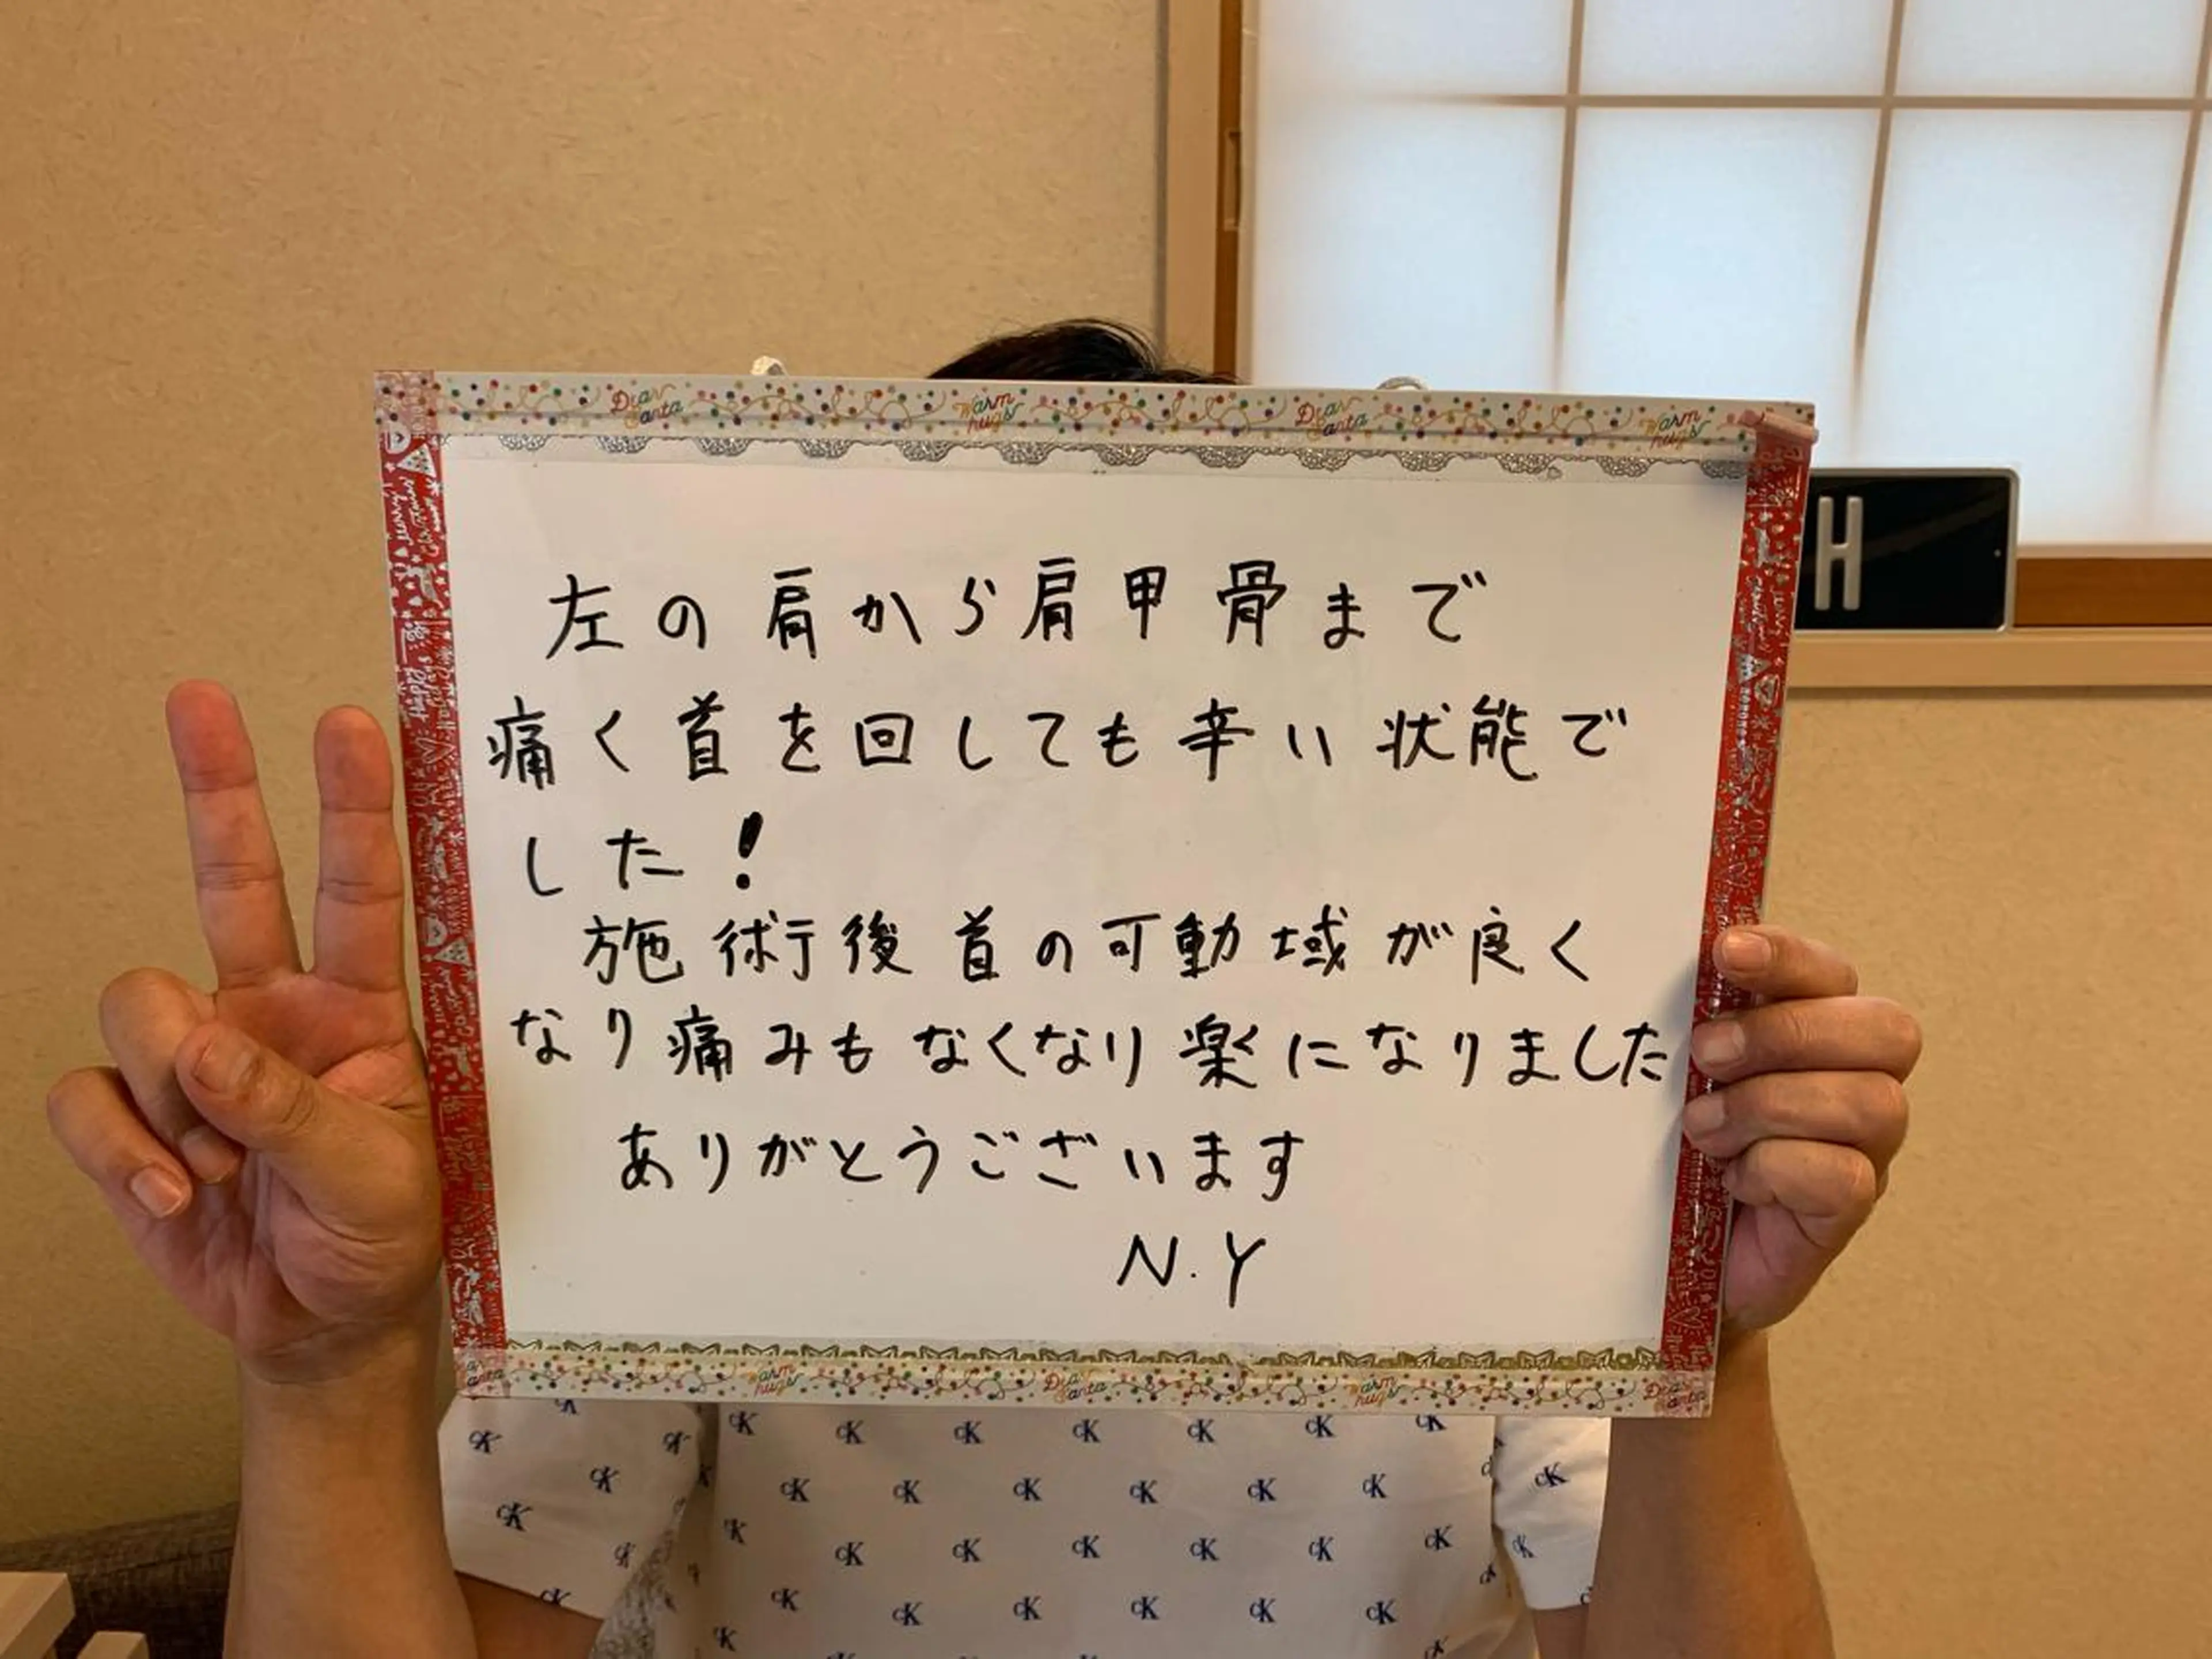 Dear Santa Warm hugs Dear Santa Warm hugs
H
左の肩から肩甲骨まで
痛く首を回しても辛い状能で
した!
施術後首の可動域が良く
なり痛みもなくなり楽になりました
ありがとうございます
N.Y
warm hugs Dear Santa warm hugs Dear Santa
CK